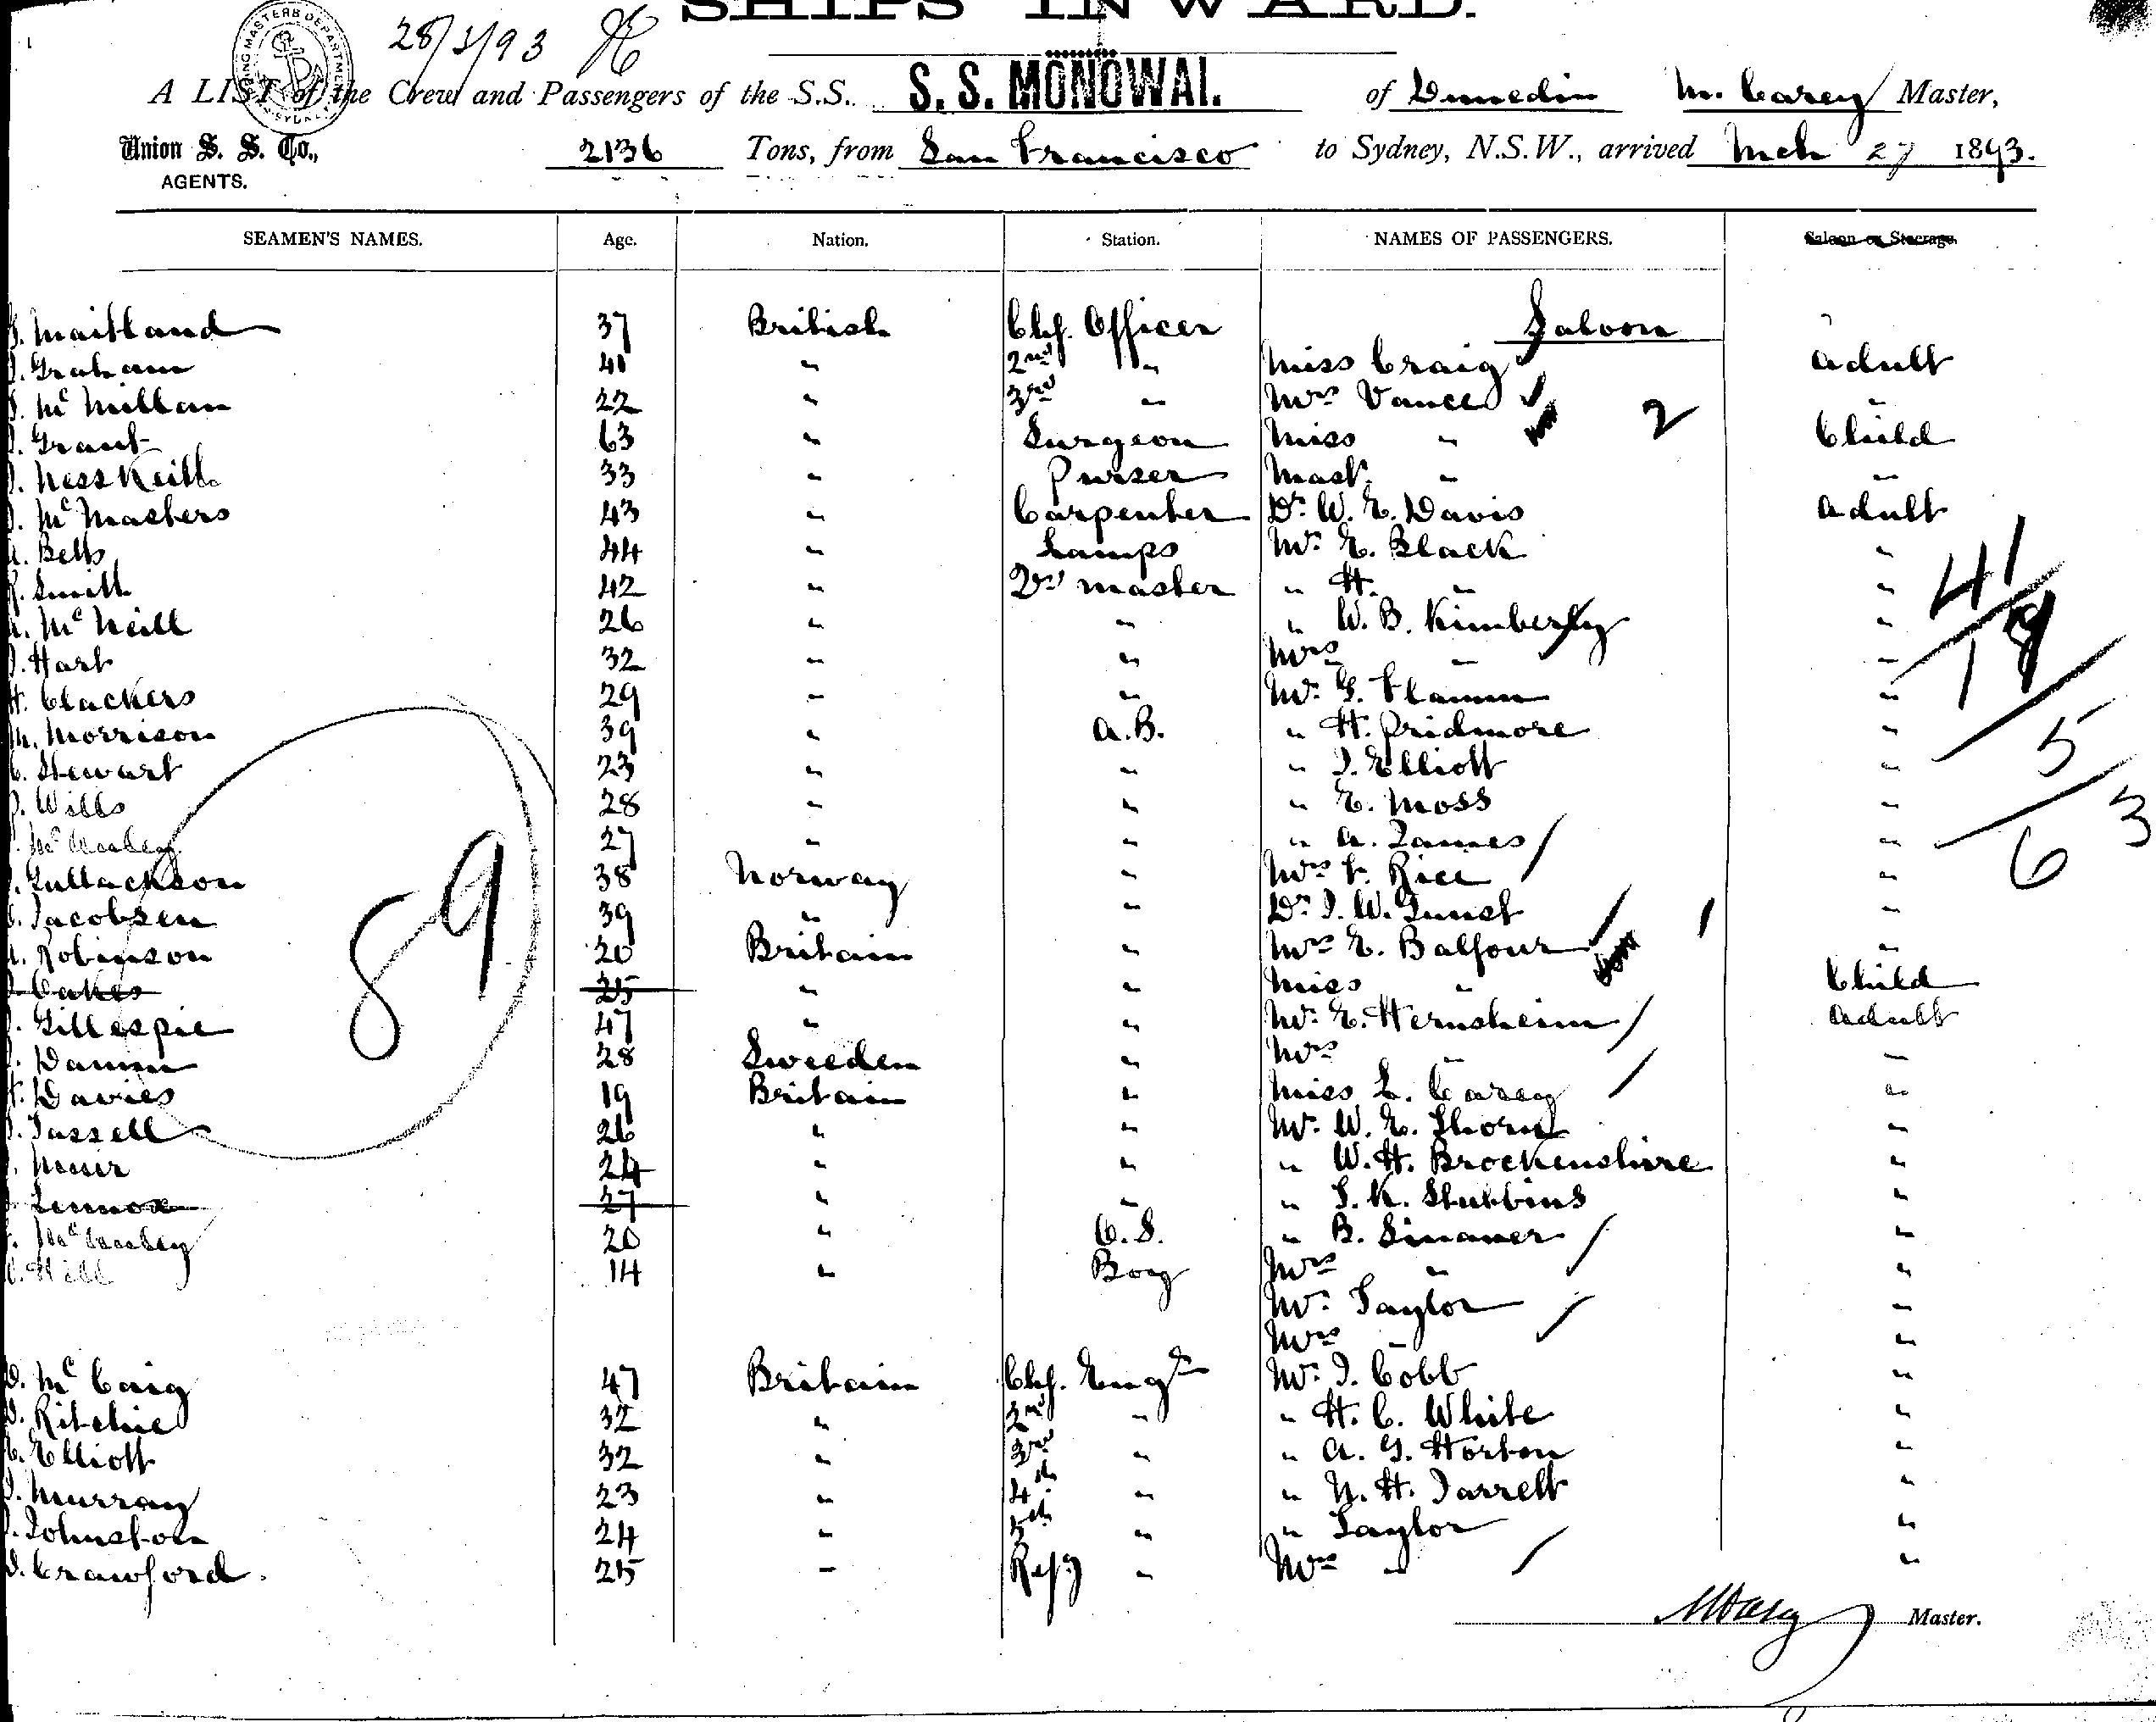 SHIPS INWARD.
28/3/93
A LIST of the Crew and Passengers of the S.S. S. S. MONOWAI. of Dunedin M. Carey Master,
Union S. S. Co., AGENTS. 2136 Tons, from San Francisco to Sydney, N.S.W., arrived Mch 27 1893.
SEAMEN'S NAMES. Age. Nation. Station. NAMES OF PASSENGERS. Saloon or Steerage.
Saloon
Maitland 37 British Chf. Officer
Graham 41 " 2nd " Miss Craig Adult
McMillan 22 " 3rd " Mrs Vance "
Grant 63 " Surgeon Miss " 2 Child
Ness Keith 33 " Purser Mast. " "
McMasters 43 " Carpenter Dr. W. E. Davis Adult
Betts 44 " Lamps Mr. E. Black "
Smith 42 " Qr master " H. " "
McNeill 26 " " " W. B. Kimberly "
Hart 32 " " Mrs " "
Clackers 29 " " Mr. G. Flamm "
Morrison 39 " A.B. " H. Pridmore "
Stewart 23 " " " J. Elliott "
Wills 28 " " " E. Moss "
27 " " " A. James "
Gullackson 38 Norway " Mrs F. Rice "
Jacobsen 39 " " Dr. J. W. Gunst "
Robinson 20 Britain " Mrs E. Balfour 1 "
Oakes 25 " " Miss " Child
Gillespie 47 " " Mr. E. Hernsheim Adult
Damm 28 Sweeden " Mrs " "
Davies 19 Britain " Miss L. Carey "
Tassell 26 " " Mr. W. E. Thorn "
Muir 24 " " " W. H. Brockenshire "
Lennox 27 " " " S. K. Stubbins "
20 " O.S. " B. Sinauer "
Hill 14 " Boy Mrs " "
Mr. Taylor "
Mrs " "
McCaig 47 Britain Chf. Engr Mr. J. Cobb "
Ritchie 32 " 2nd " " H. C. White "
Elliott 32 " 3rd " " A. G. Horton "
Murray 23 " 4th " " N. H. Jarrett "
Johnston 24 " 5th " " Taylor "
Crawford 25 " Refg " Mrs " "
89
41
18
5
3
6
MCarey Master.